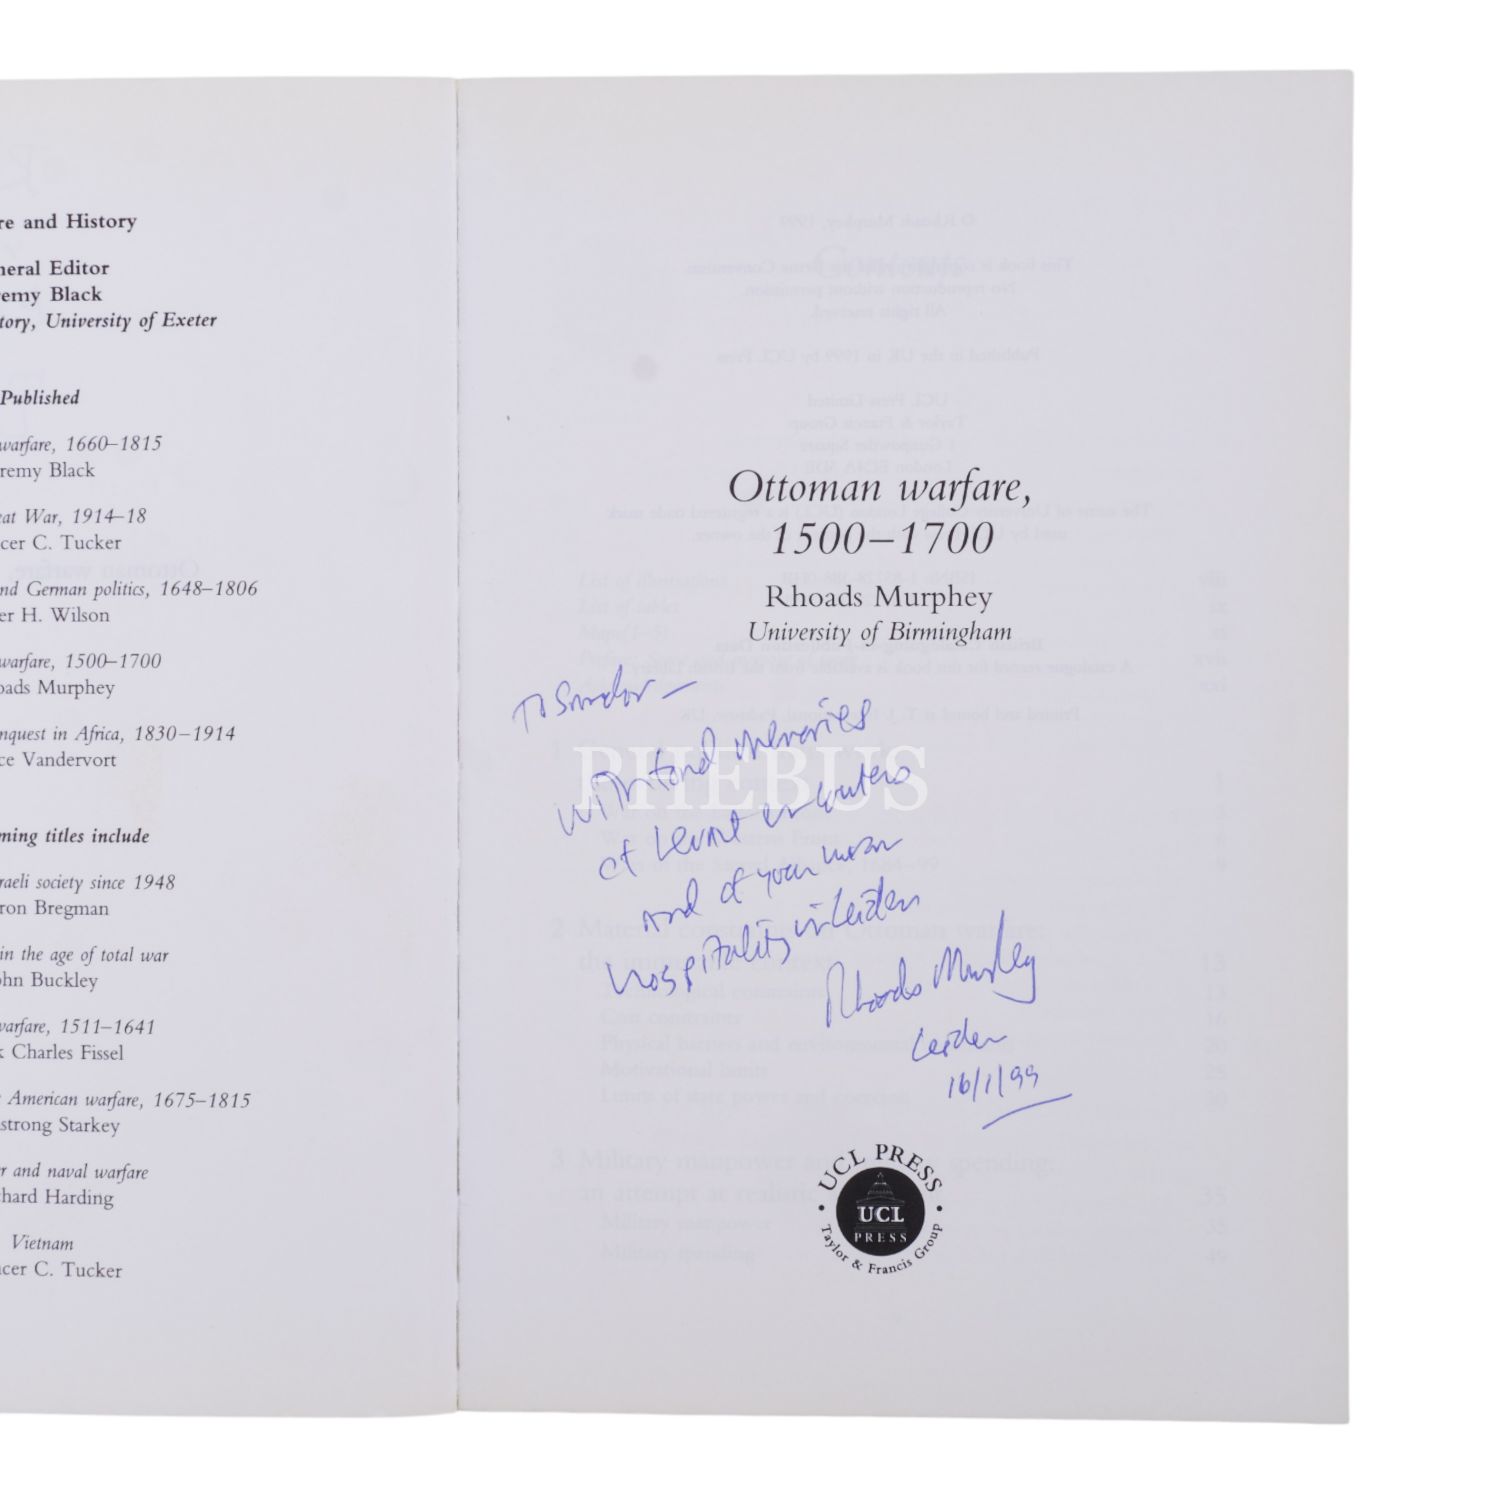 re and History
neral Editor
remy Black
tory, University of Exeter
Published
warfare, 1660–1815
remy Black
eat War, 1914–18
ncer C. Tucker
nd German politics, 1648–1806
er H. Wilson
warfare, 1500–1700
oads Murphey
nquest in Africa, 1830–1914
ce Vandervort
ming titles include
raeli society since 1948
ron Bregman
in the age of total war
ohn Buckley
warfare, 1511–1641
k Charles Fissel
American warfare, 1675–1815
strong Starkey
r and naval warfare
chard Harding
Vietnam
ncer C. Tucker
Ottoman warfare,
1500–1700
Rhoads Murphey
University of Birmingham
To Sandor –
with fond memories
of Levant encounters
and of your warm
hospitality in Leiden
Rhoads Murphey
Leiden
16/1/99
PHEBUS
UCL PRESS
UCL
PRESS
Taylor & Francis Group